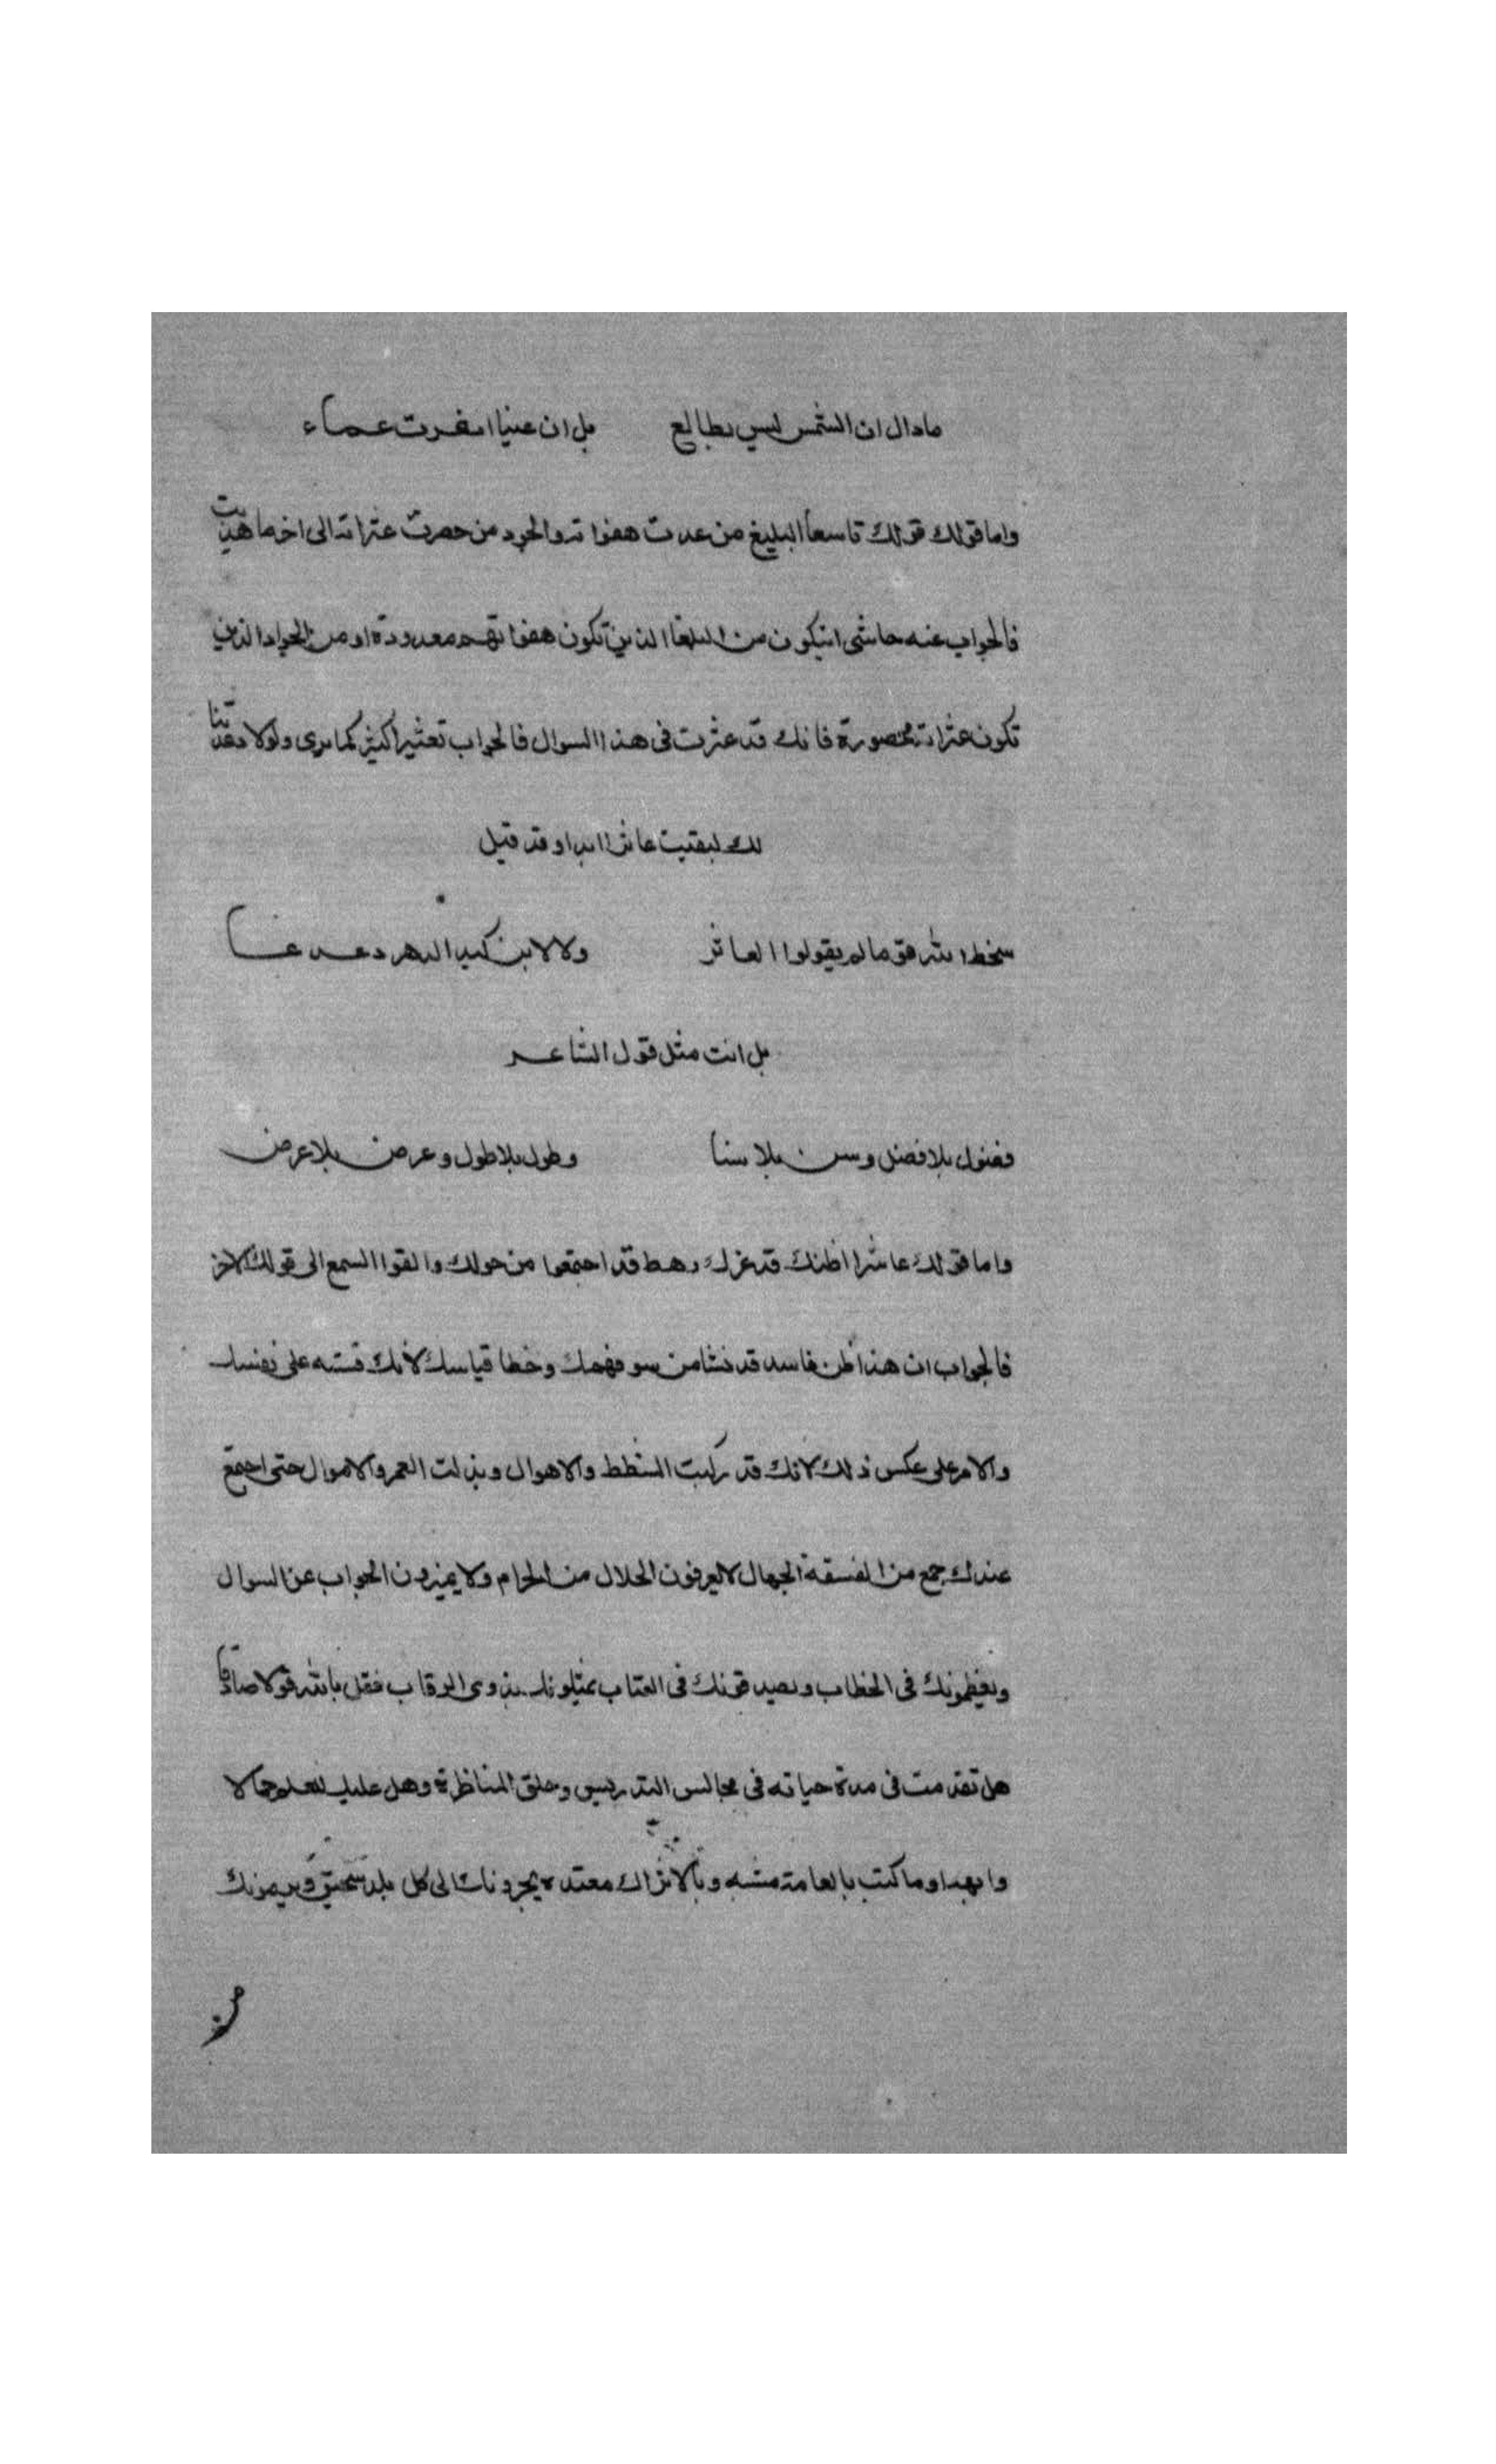 ماذاك ان الشمس ليس بطالع بل ان عينا انفرت عماء
واما قولك قولك تاسعا البليغ من عدت هفواته والجرد من حصرت عثراته الى اخر ما هذيت
فالجواب عنه حاشى ان يكون من البلغا الذين تكون هفواتهم معدودة او من الجواد الذين
تكون عثراته محصورة فانك قد عثرت فى هذا السوال فالجواب تعثيرا كثيرا كما يرى ولولا دعدعتنا
لك لبقيت عاثرا ابدا وقد قيل
سخط الله قوما لم يقولوا العاثر ولا لابن كبد الدهر دعدعا
بل انت مثل قول الشاعر
فضول بلا فضل وسن بلا سنا وطول بلا طول وعرض بلا عرض
واما قولك عاشرا اظنك قد غرك رهط قد اجتمعوا من حولك والقوا السمع الى قولك الاخر
فالجواب ان هذا ظن فاسد قد نشا من سو فهمك وخطا قياسك لانك قسته على نفسك
والامر على عكس ذلك لانك قد ركبت الشطط والاهوال وبذلت العمر والاموال حتى اجتمع
عندك جمع من الفسقة الجهال لا يعرفون الحلال من الحرام ولا يميزون الجواب عن السوال
ويعظمونك فى الخطاب ويصدقونك فى العتاب يمثلونك بذوى الرقاب فقل بالله قولا صادقا
هل تقدمت فى مدة حياته فى مجالس التدريس وحلق المناظرة وهل عليك للعلم جمالا
وابهة او ما كنت بالعامة مشبه وبالاتراك معتده يجرونك الى كل بلد سحيق ويرمونك
من